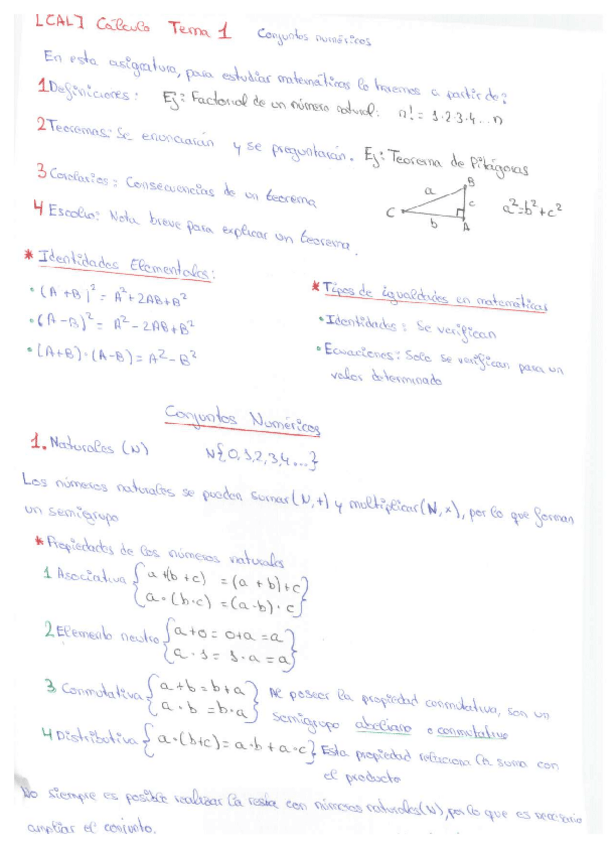 [CAL] Cálculo Tema 1 Conjuntos numéricos
En esta asignatura, para estudiar matemáticas lo haremos a partir de:
1 Definiciones: Ej: Factorial de un número natural: n! = 1·2·3·4...n
2 Teoremas: Se enunciarán y se preguntarán. Ej: Teorema de Pitágoras
3 Corolarios: Consecuencias de un teorema
4 Escolio: Nota breve para explicar un teorema.
B
a
c
C
b
A
a²=b²+c²
* Identidades Elementales:
• (A+B)² = A²+2AB+B²
• (A-B)² = A²-2AB+B²
• (A+B)·(A-B) = A²-B²
* Tipos de igualdades en matemáticas
• Identidades: Se verifican
• Ecuaciones: Solo se verifican para un
valor determinado
Conjuntos Numéricos
1. Naturales (N) N{0,1,2,3,4,...}
Los números naturales se pueden sumar (N,+) y multiplicar (N,x), por lo que forman
un semigrupo
* Propiedades de los números naturales
1 Asociativa {a+(b+c) = (a+b)+c}
{a·(b·c) = (a·b)·c}
2 Elemento neutro {a+0 = 0+a = a}
{a·1 = 1·a = a}
3 Conmutativa {a+b = b+a} Al poseer la propiedad conmutativa, son un
{a·b = b·a} semigrupo abeliano o conmutativo
4 Distributiva {a·(b+c) = a·b + a·c} Esta propiedad relaciona la suma con
el producto
No siempre es posible realizar la resta con números naturales (N), por lo que es necesario
ampliar el conjunto.